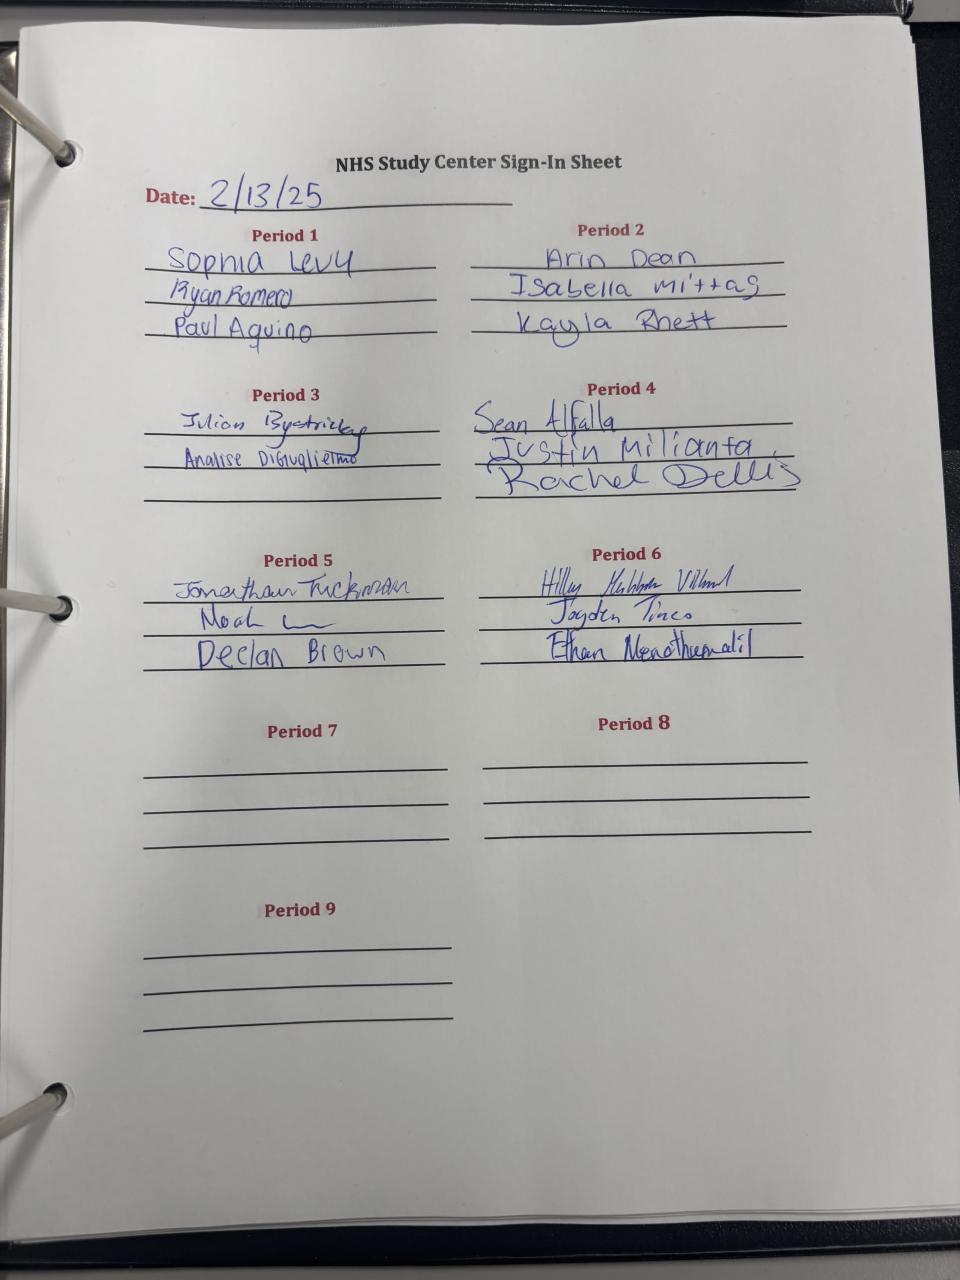 NHS Study Center Sign-In Sheet
Date: 2/13/25
Period 1
Sophia Levy
Ryan Romero
Paul Aquino
Period 2
Arin Dean
Isabella Mittag
Kayla Rhett
Period 3
Julian Bystricky
Analise DiGuglielmo
Period 4
Sean Alfalla
Justin Milianta
Rachel Dellis
Period 5
Jonathan Tuckman
Noah
Declan Brown
Period 6
Jayden Tineo
Ethan
Period 7
Period 8
Period 9